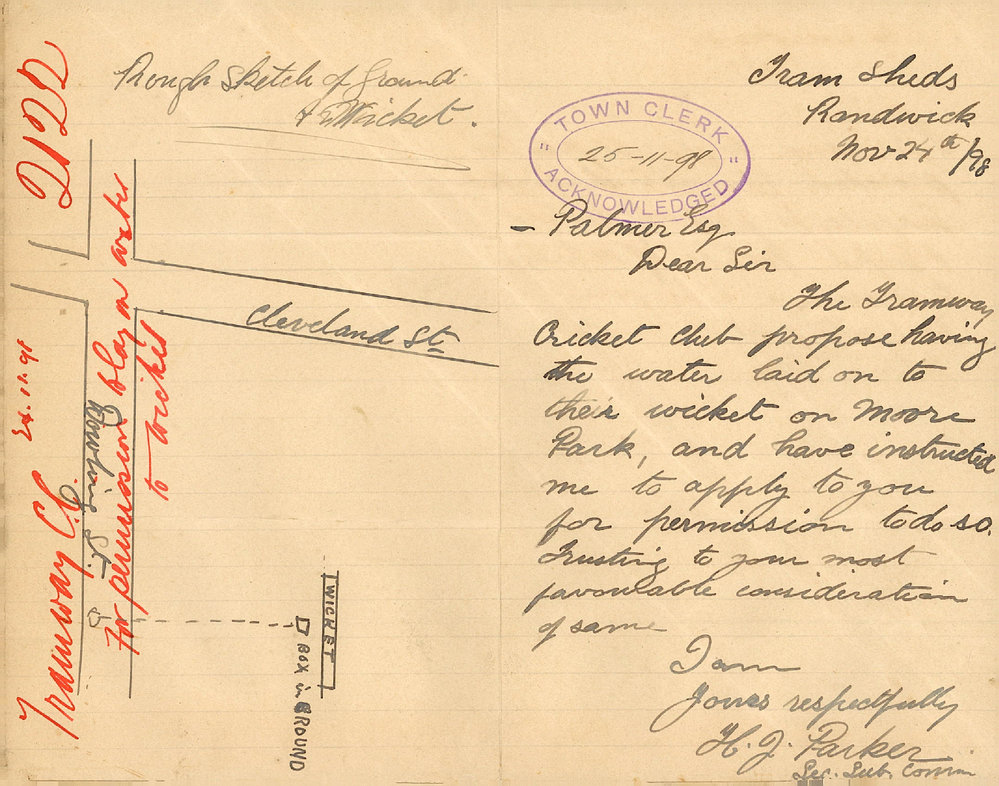 Rough Sketch of Ground
& Wicket.
2122
Tramway C.C. 24.11.98
For permission to lay on water
to wicket
Cleveland St.
Dowling St.
WICKET
BOX in GROUND
Tram Sheds
Randwick
Nov 24th/98
TOWN CLERK
25-11-98
ACKNOWLEDGED
– Palmer Esq
Dear Sir
The Tramway
Cricket Club propose having
the water laid on to
their wicket on Moore
Park, and have instructed
me to apply to you
for permission to do so.
Trusting to your most
favourable consideration
of same
I am
Yours respectfully
H. J. Parker
Sec. Sub. Comm